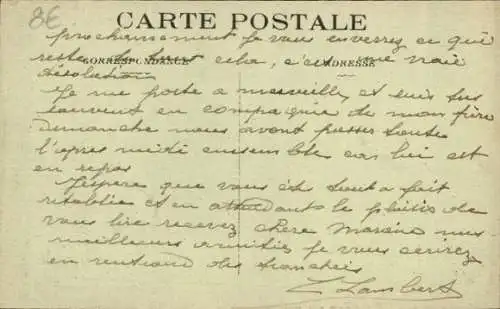 8€
CARTE POSTALE
prochainement je vous enverrez ce qui
CORRESPONDANCE
ADRESSE
reste de tout cela, c'est une vraie
désolation
Je me porte a merveille, et suis
souvent en compagnie de mon frère
dimanche nous avont passer toute
l'apres midi ensemble car lui est
en repos
J'espère que vous êtes tout a fait
rétablie et en attendant le plaisir de
vous lire recevez chère Marine mes
meilleurs amitiés je vous écrirez
en rentrant des tranchées
L Lambert